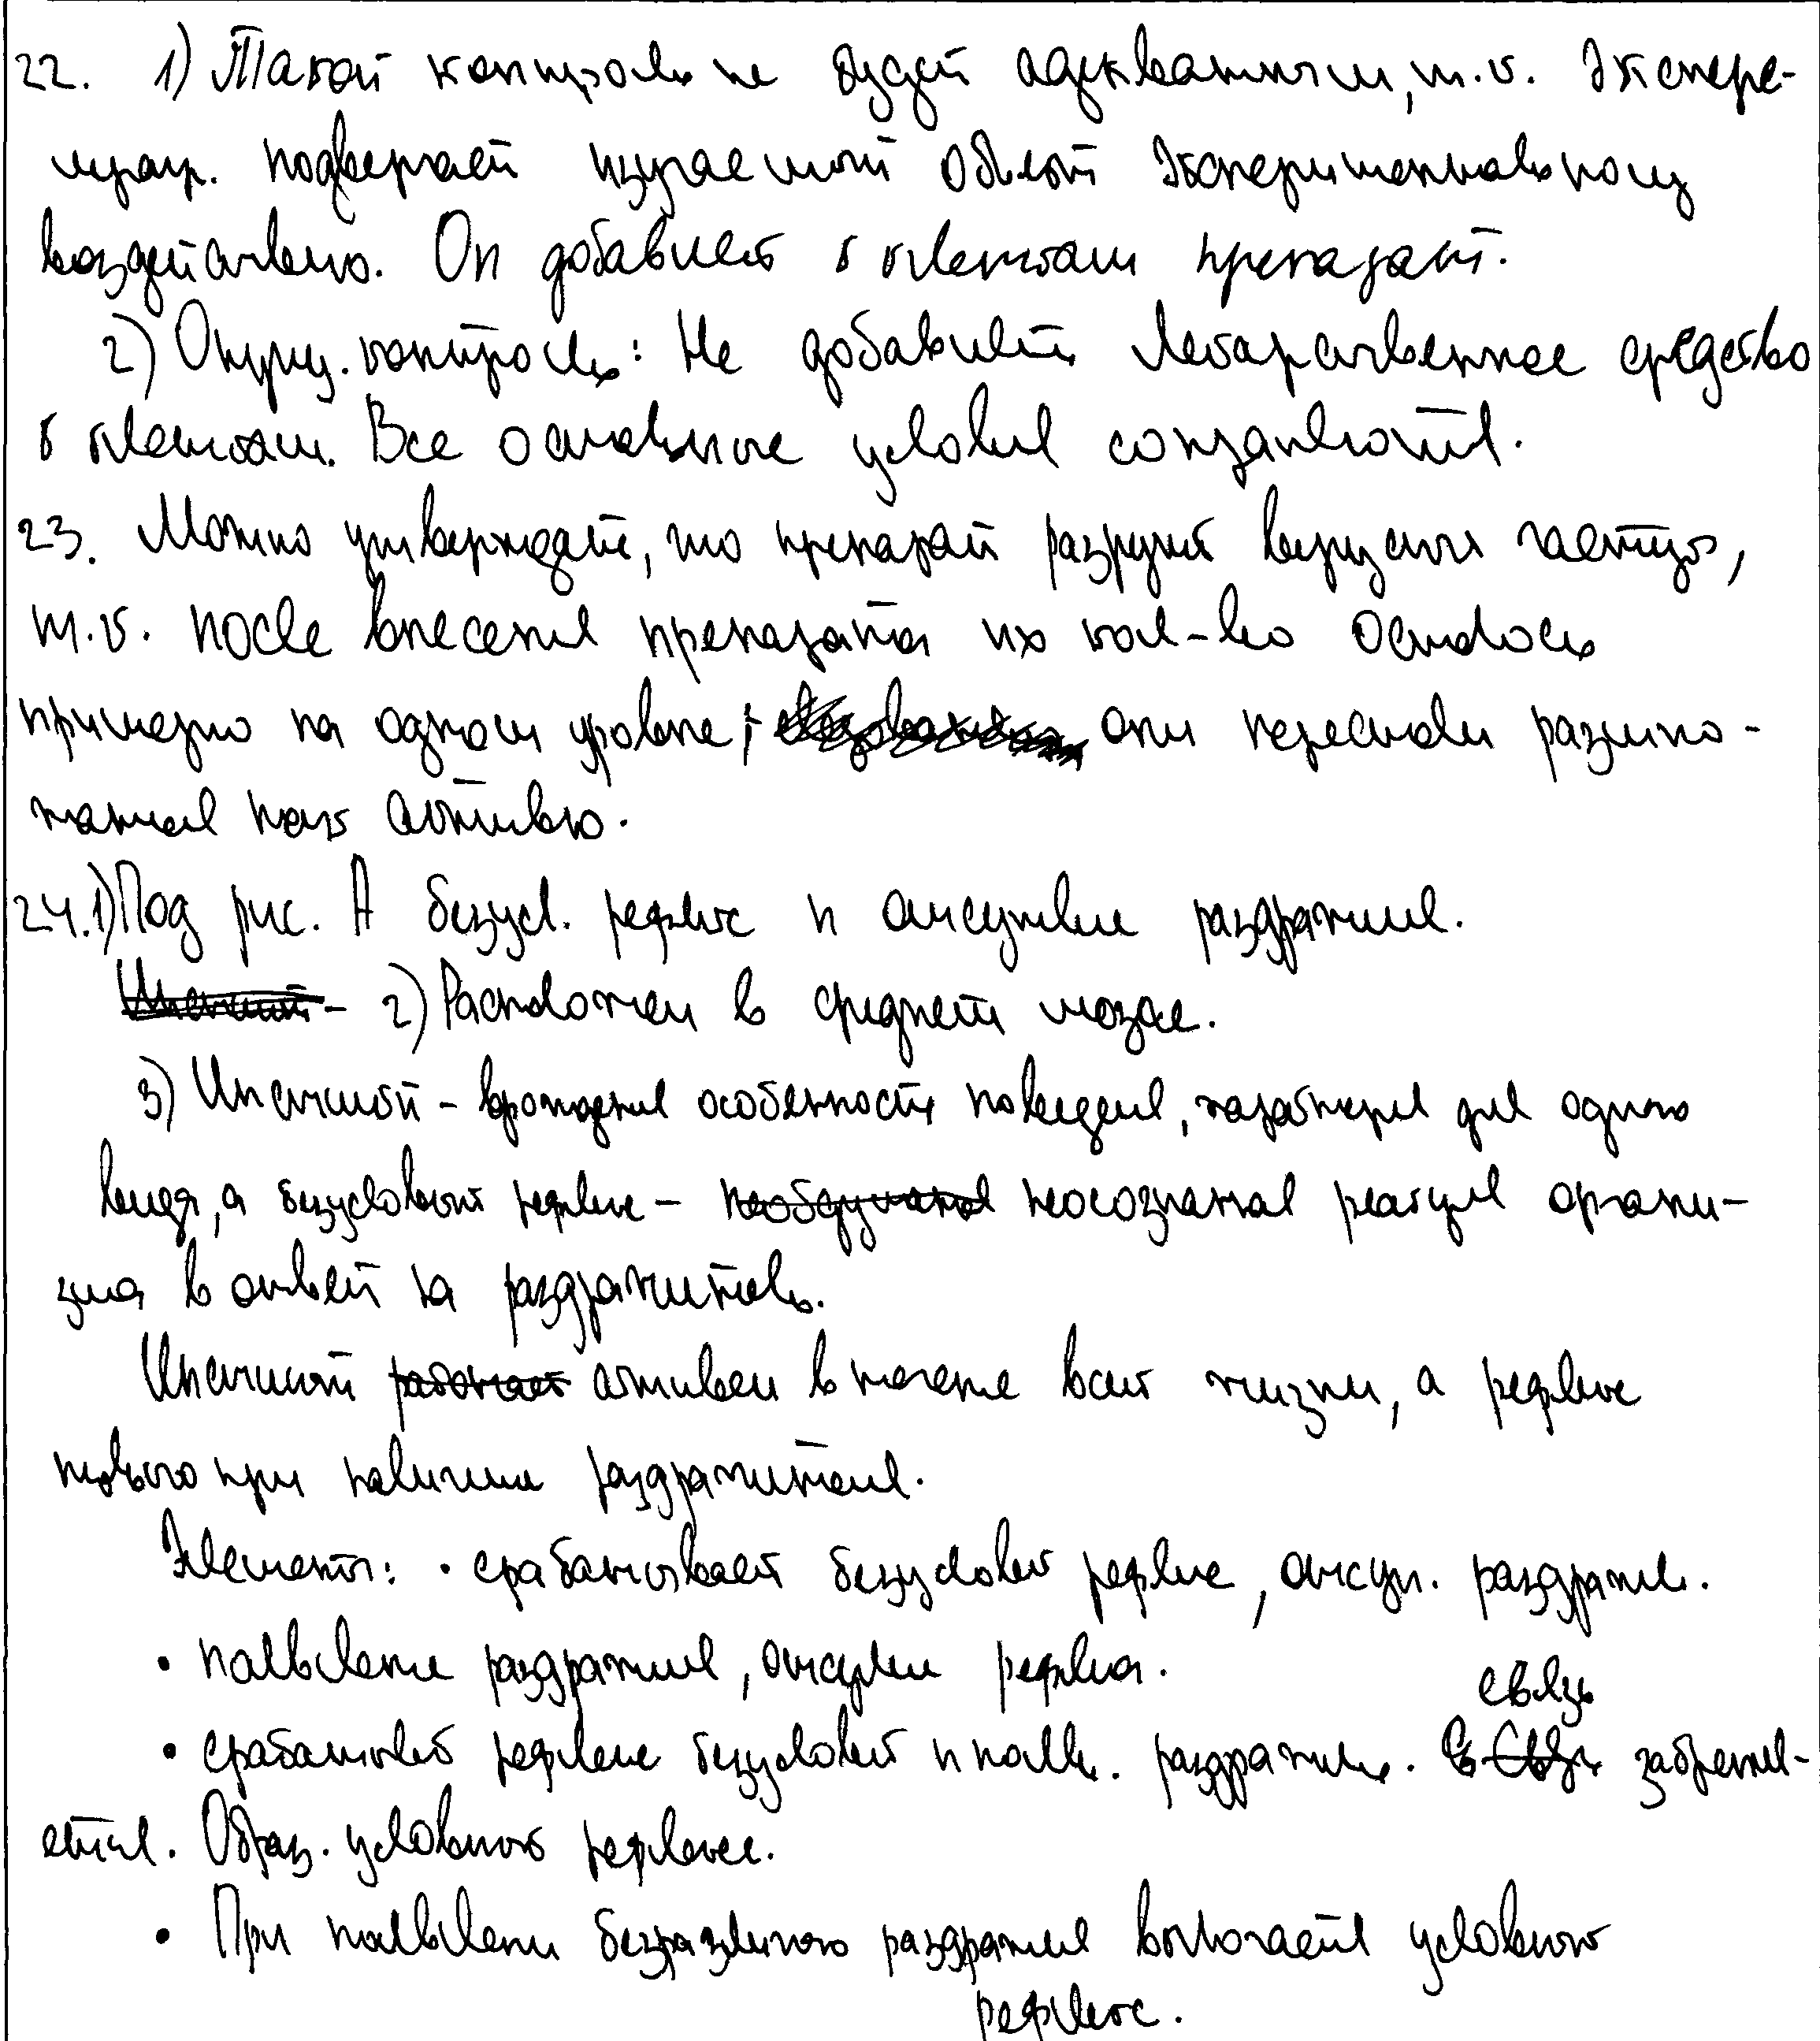 22. 1) Такой контроль не будет адекватным, т.к. экспере-
подвергает изучаемый объект экспериментальному
воздействию. Он добавляет к клеткам препарат.
2) Отриц. контроль: Не добавлять лекарственное средство
к клеткам. Все остальные условия сохраняются.
23. Можно утверждать, что препарат разрушит вирусные частицы,
т.к. после внесения препарата их кол-во осталось
примерно на одном уровне, они перестали размно-
жаться активно.
24. 1) Под рис. А безусл. рефлекс и отсутствие раздражит.
2) Расположен в среднем мозге.
3) Инстинкт - врождённые особенности поведения, характерные для одного
вида, а безусловный рефлекс - неосознанная реакция органи-
зма в ответ на раздражитель.
Инстинкт активен в течение всей жизни, а рефлекс
только при наличии раздражителя.
Элементы: • срабатывает безусловный рефлекс, отсут. раздражит.
• появление раздражителя, отсутствие рефлекса.
• срабатывает рефлекс безусловный и появ. раздражитель. связь закрепля-
ется. Образ. условного рефлекса.
• При появлении безразличного раздражителя включается условный
рефлекс.